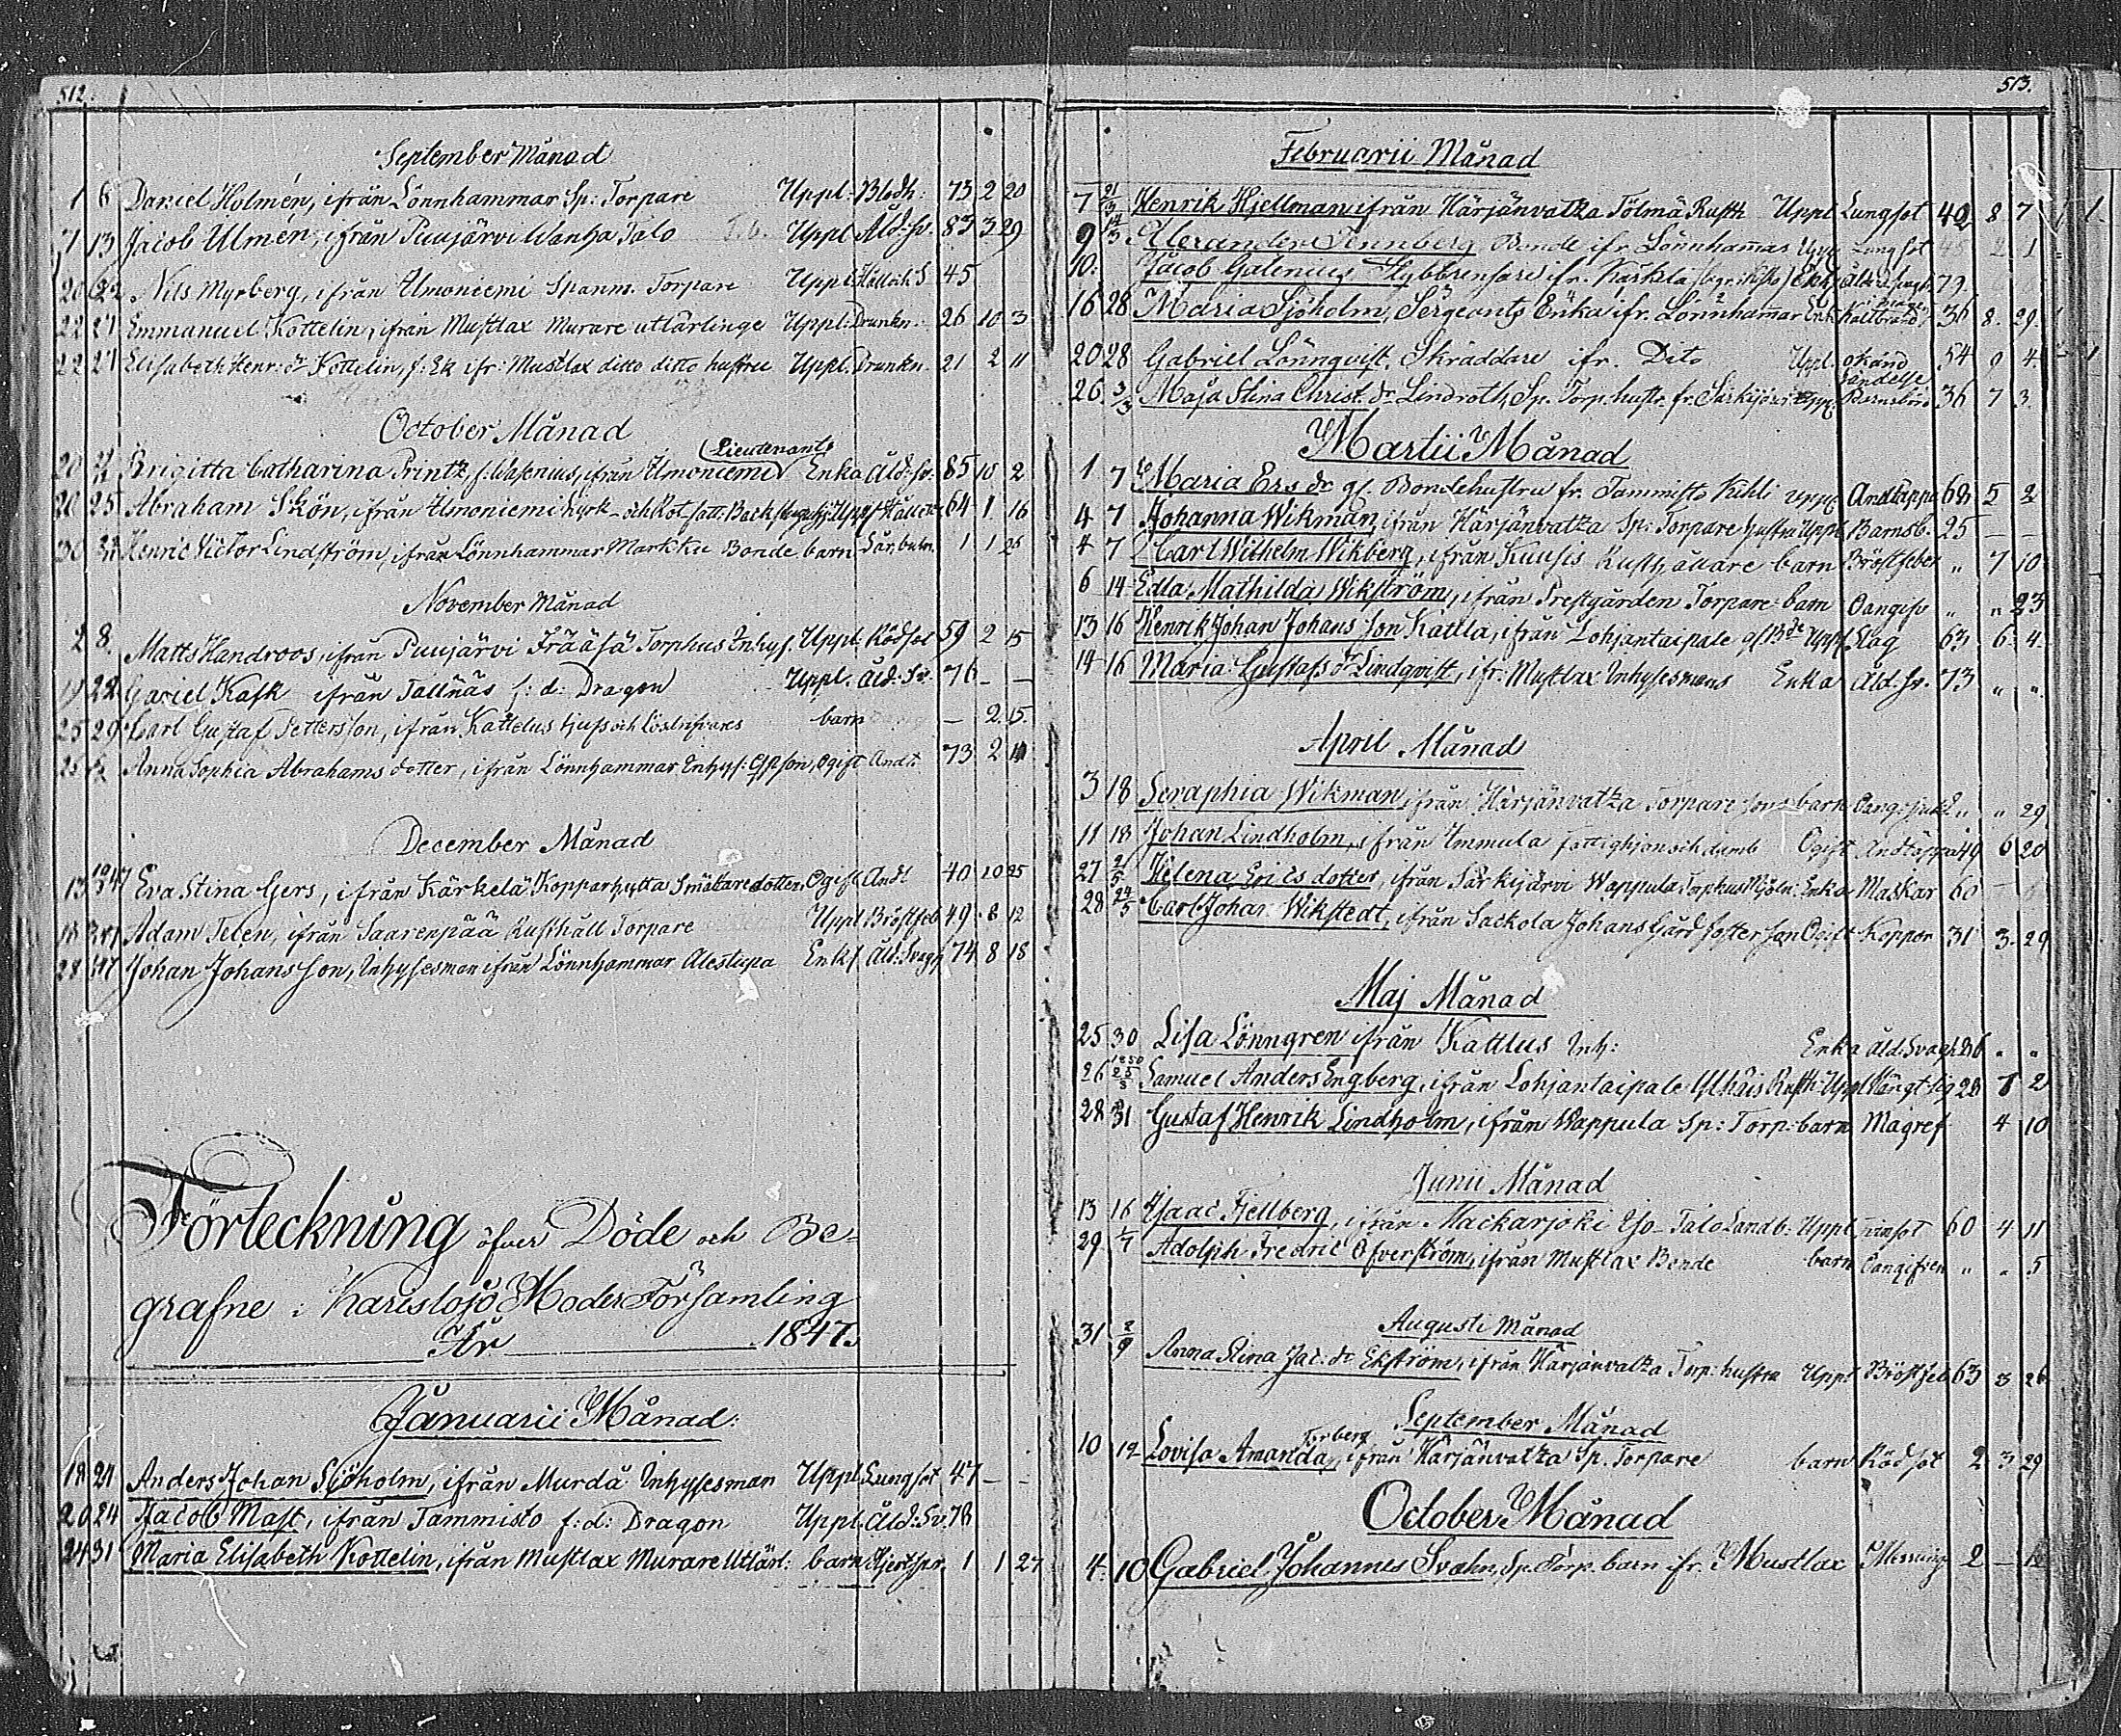 512.
September Månad
1 8 Daniel Holmén, ifrån Lönnhammar Sp: Torpare Uppl: Blodh: 73 2 20
7 13 Jacob Ulmén, ifrån Puujärvi Wanha Talo Uppl Åld: sv. 83 3 29
20 Nils Myrberg, ifrån Umoniemi Spanm. Torpare Uppl: 45
22 27 Emmanuel Kottelin, ifrån Mustlax Murare utlärlinge Uppl: Drunkn: 26 10 3
22 27 Elisabeth Henr: dr Kottelin, f: Ek ifr: Mustlax ditto ditto hustru Uppl. Drunkn. 21 2 11
October Månad
Lieutenants
20 Brigitta Catharina Printz, f: Wasenius, ifrån Umoniemi Enka Åld: sv: 85 10 2
20 25 Abraham Skön, ifrån Umoniemi Kyrk- och Rot. fatt: 64 1 16
30 Henric Victor Lindström, ifrån Lönnhammar Markku Bonde barn 1 1 25
November Månad
2 8 Matts Handroos, ifrån Puujärvi Frääsä Torphus Inhys. Uppl. Rödsot 59 2 15
19 22 Gabiel Kask ifrån Tallnäs f: d: Dragon Uppl. Åld. Sv. 76 – –
25 29 Carl Gustaf Pettersson, ifrån Kattelus barn – 2 15.
25 Anna Sophia Abrahams dotter, ifrån Lönnhammar Inhys: Ogift Andt 73 2 11
December Månad
13 Eva Stina Gers, ifrån Kärkelä Kopparhytta Smältare dotter, Ogift Andt 40 10 25
18 Adam Telen, ifrån Saarenpää Rusthåll Torpare Uppl Bröstfeb 49 8 12
28 Johan Johansson, Inhysesman ifrån Lönnhammar Alestupa Enkl Åld: Svagh 74 8 18
Förteckning öfver Döde och Be-
grafne i Karislojo Moder Församling
År 1847.
Januarii Månad:
18 24 Anders Johan Sjöholm, ifrån Murdå Inhysesman Uppl Lungsot 47 – –
20 24 Jacob Mast, ifrån Tammisto f: d: Dragon Uppl. Åld: Sv. 78
24 31 Maria Elisabeth Kottelin, ifrån Mustlax Murare Utlärl: barn 1 1 27
513.
Februarii Månad
7 21/3 Henrik Hjellman ifrån Härjänvatza Tölmä Rusth Uppl Lungsot 42 8 7
9 14/3 Alexander Tennberg Bonde ifr. Lönnhamar Uppl Lungsot 48 2 1
10. Jacob Galenius ifr. Karkela 79
16 28 Maria Sjöholm, Sergeants Enka ifr. Lönnhamar Enk. Kallbrand 36 8. 29.
20 28 Gabriel Lönnqvist, Skräddare ifr. Dito Uppl. okänd 54 9 4.
händelse
26 3/3 Maja Stina Christ. dr Lindroth, Sp. Torp. hustr. fr. Särkijärvi Uppl. Barnsbörd 36 7 3.
Martii Månad
1 7 Maria Ers dr gl. Bondehustru fr. Tammisto Kihli Uppl Andtäppa 68 5 2
4 7 Johanna Wikman, ifrån Härjänvatza Sp: Torpare hustru Uppl Barnsb. 25 – –
4 7 Carl Wilhelm Wikberg, ifrån Kuusis Rusthållare barn Bröstfeber „ 7 10
6 14 Edla Mathilda Wikström, ifrån Prestgården Torpare barn Oangifv „ „ 23
13 16 Henrik Johan Johans son Kattla, ifrån Lohjantaipale Uppl Slag 63 6. 4.
14 16 Maria Gustafs dr Lindqvist, ifr. Mustlax Inhysesmans Enka Åld. sv. 73 „ „
April Månad
3 18 Seraphia Wikman, ifrån Härjänvatza Torpare sons barn Oang: sjukd „ „ 29
11 18 Johan Lindholm, ifrån Immula fattighjon och dumb Ogift Andtäppa 49 6 20
27 2/5 Helena Erics dotter, ifrån Särkijärvi Wappula Enka Maskar 60
28 24/5 Carl Johan Wikstedt, ifrån Sackola Johans Gård foster son Ogift Koppor 31 3 29
Maj Månad
25 30 Lisa Lönngren ifrån Kattlus Inh: Enka Åld. Svagh 86 „ „
26 1850 25/3 Samuel Anders Engberg, ifrån Lohjantaipale Ylhäis Rusth: Uppl Hängt sig 28 7 2
28 31 Gustaf Henrik Lindholm, ifrån Wappula Sp: Torp: barn Magref 4 10
Junii Månad
13 16 Isaac Fjellberg, ifrån Mackarjoki Iso-Talo Landb: Uppl 60 4 11
29 1/7 Adolph Fredric Öfverström, ifrån Mustlax Bonde barn Oangifven „ „ 5
Augusti Månad
31 2/9 Anna Stina Jac. dr Ekström, ifrån Härjänvatza Torp: hustru Uppl Bröstfeb 63 3 26
September Månad
Forberg
10 12 Lovisa Amanda, ifrån Härjänvatza Sp. Torpare barn Rödsot 2 3 29
October Månad
4. 10 Gabriel Johannes Svahn, Sp. Torp. barn ifr. Mustlax Messling 2 –